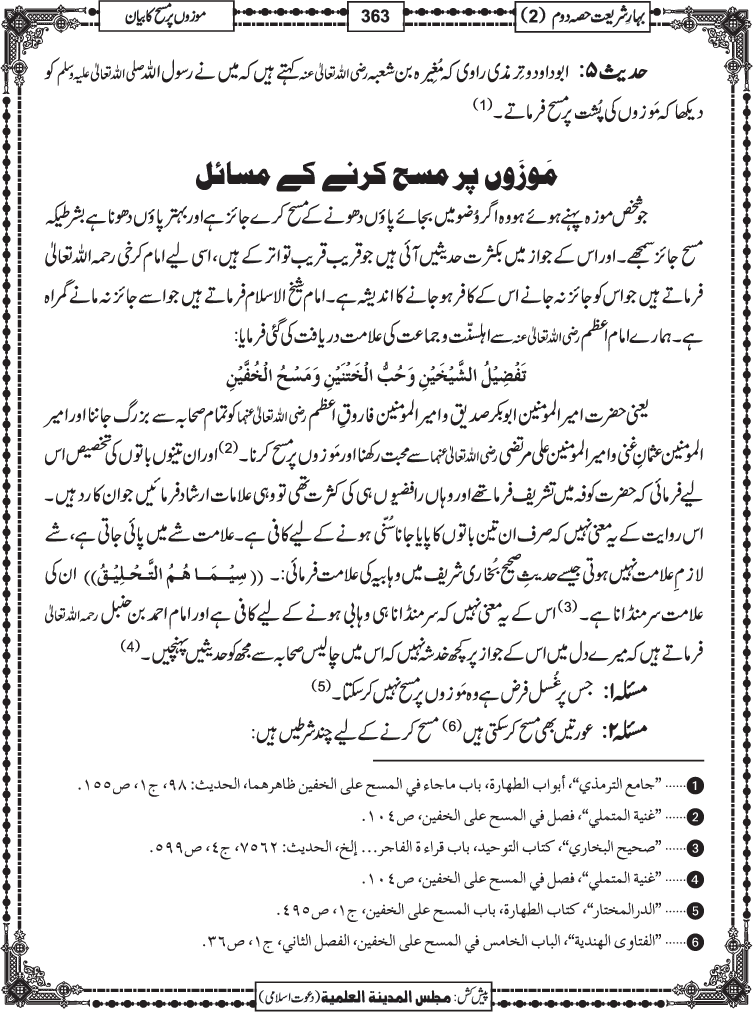 بہار شریعت حصہ دوم (2)
363
موزوں پر مسح کا بیان
حدیث ۵: ابو داود و ترمذی راوی کہ مُغِیرہ بن شعبہ رضی اللہ تعالیٰ عنہ کہتے ہیں کہ میں نے رسول اللہ صلی اللہ تعالیٰ علیہ وسلم کو
دیکھا کہ مَوزوں کی پُشت پر مسح فرماتے۔ (1)
مَوزَوں پر مسح کرنے کے مسائل
جو شخص موزہ پہنے ہوئے ہو وہ اگر وُضو میں بجائے پاؤں دھونے کے مسح کرے جائز ہے اور بہتر پاؤں دھونا ہے بشرطیکہ
مسح جائز سمجھے۔ اور اس کے جواز میں بکثرت حدیثیں آئی ہیں جو قریب قریب تواتر کے ہیں، اسی لیے امام کرخی رحمہ اللہ تعالیٰ
فرماتے ہیں جو اس کو جائز نہ جانے اس کے کافر ہو جانے کا اندیشہ ہے۔ امام شیخ الاسلام فرماتے ہیں جو اسے جائز نہ مانے گمراہ
ہے۔ ہمارے امام اعظم رضی اللہ تعالیٰ عنہ سے اہلسنّت و جماعت کی علامت دریافت کی گئی فرمایا:
تَفْضِيْلُ الشَّيْخَيْنِ وَحُبُّ الْخَتَنَيْنِ وَمَسْحُ الْخُفَّيْنِ
یعنی حضرت امیر المومنین ابوبکر صدیق و امیر المومنین فاروقِ اعظم رضی اللہ تعالیٰ عنہما کو تمام صحابہ سے بزرگ جاننا اور امیر
المومنین عثمانِ غنی و امیر المومنین علی مرتضیٰ رضی اللہ تعالیٰ عنہما سے محبت رکھنا اور مَوزوں پر مسح کرنا۔ (2) اور ان تینوں باتوں کی تخصیص اس
لیے فرمائی کہ حضرت کوفہ میں تشریف فرما تھے اور وہاں رافضیوں ہی کی کثرت تھی تو وہی علامات ارشاد فرمائیں جو ان کا رد ہیں۔
اس روایت کے یہ معنی نہیں کہ صرف ان تین باتوں کا پایا جانا سُنّی ہونے کے لیے کافی ہے۔ علامت شے میں پائی جاتی ہے، شے
لازمِ علامت نہیں ہوتی جیسے حدیثِ صحیح بُخاری شریف میں وہابیہ کی علامت فرمائی:۔ ((سِيْمَاهُمُ التَّحْلِيْقُ)) ان کی
علامت سر منڈانا ہے۔ (3) اس کے یہ معنی نہیں کہ سر منڈانا ہی وہابی ہونے کے لیے کافی ہے اور امام احمد بن حنبل رحمہ اللہ تعالیٰ
فرماتے ہیں کہ میرے دل میں اس کے جواز پر کچھ خدشہ نہیں کہ اس میں چالیس صحابہ سے مجھ کو حدیثیں پہنچیں۔ (4)
مسئلہ ۱: جس پر غُسل فرض ہے وہ مَوزوں پر مسح نہیں کر سکتا۔ (5)
مسئلہ ۲: عورتیں بھی مسح کر سکتی ہیں (6) مسح کرنے کے لیے چند شرطیں ہیں:
1 ...... ”جامع الترمذي“، أبواب الطهارة، باب ماجاء في المسح على الخفين ظاهرهما، الحديث: ٩٨، ج١، ص١٥٥.
2 ...... ”غنية المتملي“، فصل في المسح على الخفين، ص١٠٤.
3 ...... ”صحيح البخاري“، كتاب التوحيد، باب قراءة الفاجر... إلخ، الحديث: ٧٥٦٢، ج٤، ص٥٩٩.
4 ...... ”غنية المتملي“، فصل في المسح على الخفين، ص١٠٤.
5 ...... ”الدرالمختار“، كتاب الطهارة، باب المسح على الخفين، ج١، ص٤٩٥.
6 ...... ”الفتاوى الهندية“، الباب الخامس في المسح على الخفين، الفصل الثاني، ج١، ص٣٦.
پیش کش: مجلس المدينة العلمية (دعوت اسلامی)